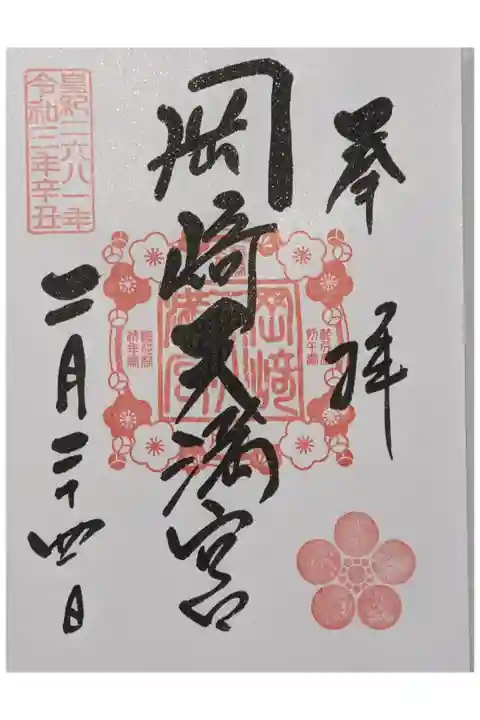 奉拝
岡崎天満宮
皇紀二六八一年
令和三年辛丑
二月二十四日
岡崎
天満宮